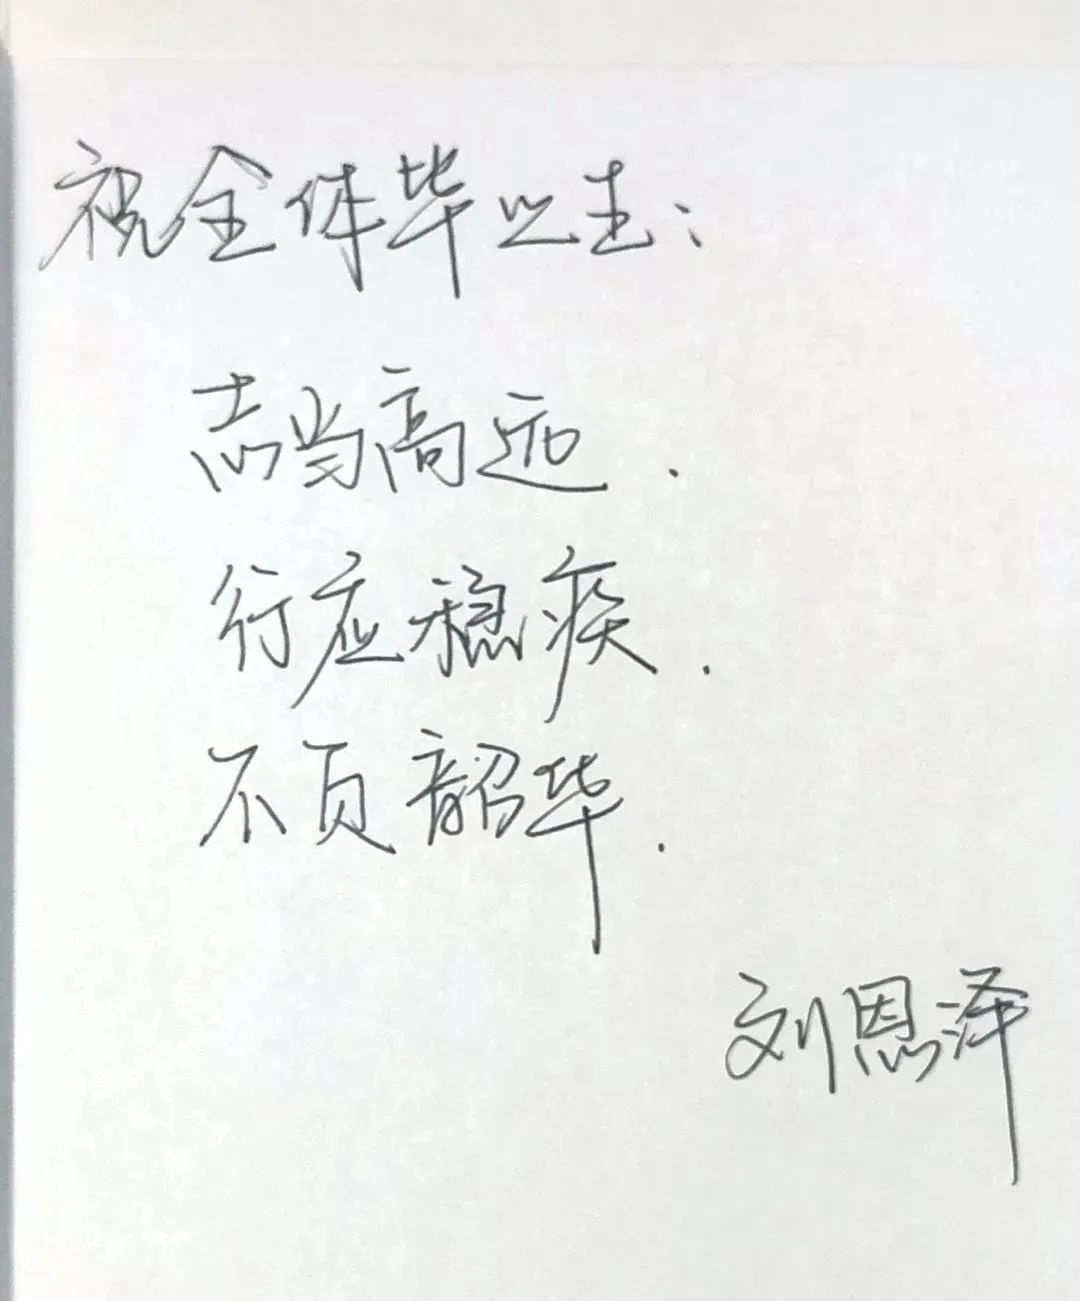 祝全体毕业生：
志当高远.
行应稳疾.
不负韶华.
刘恩泽